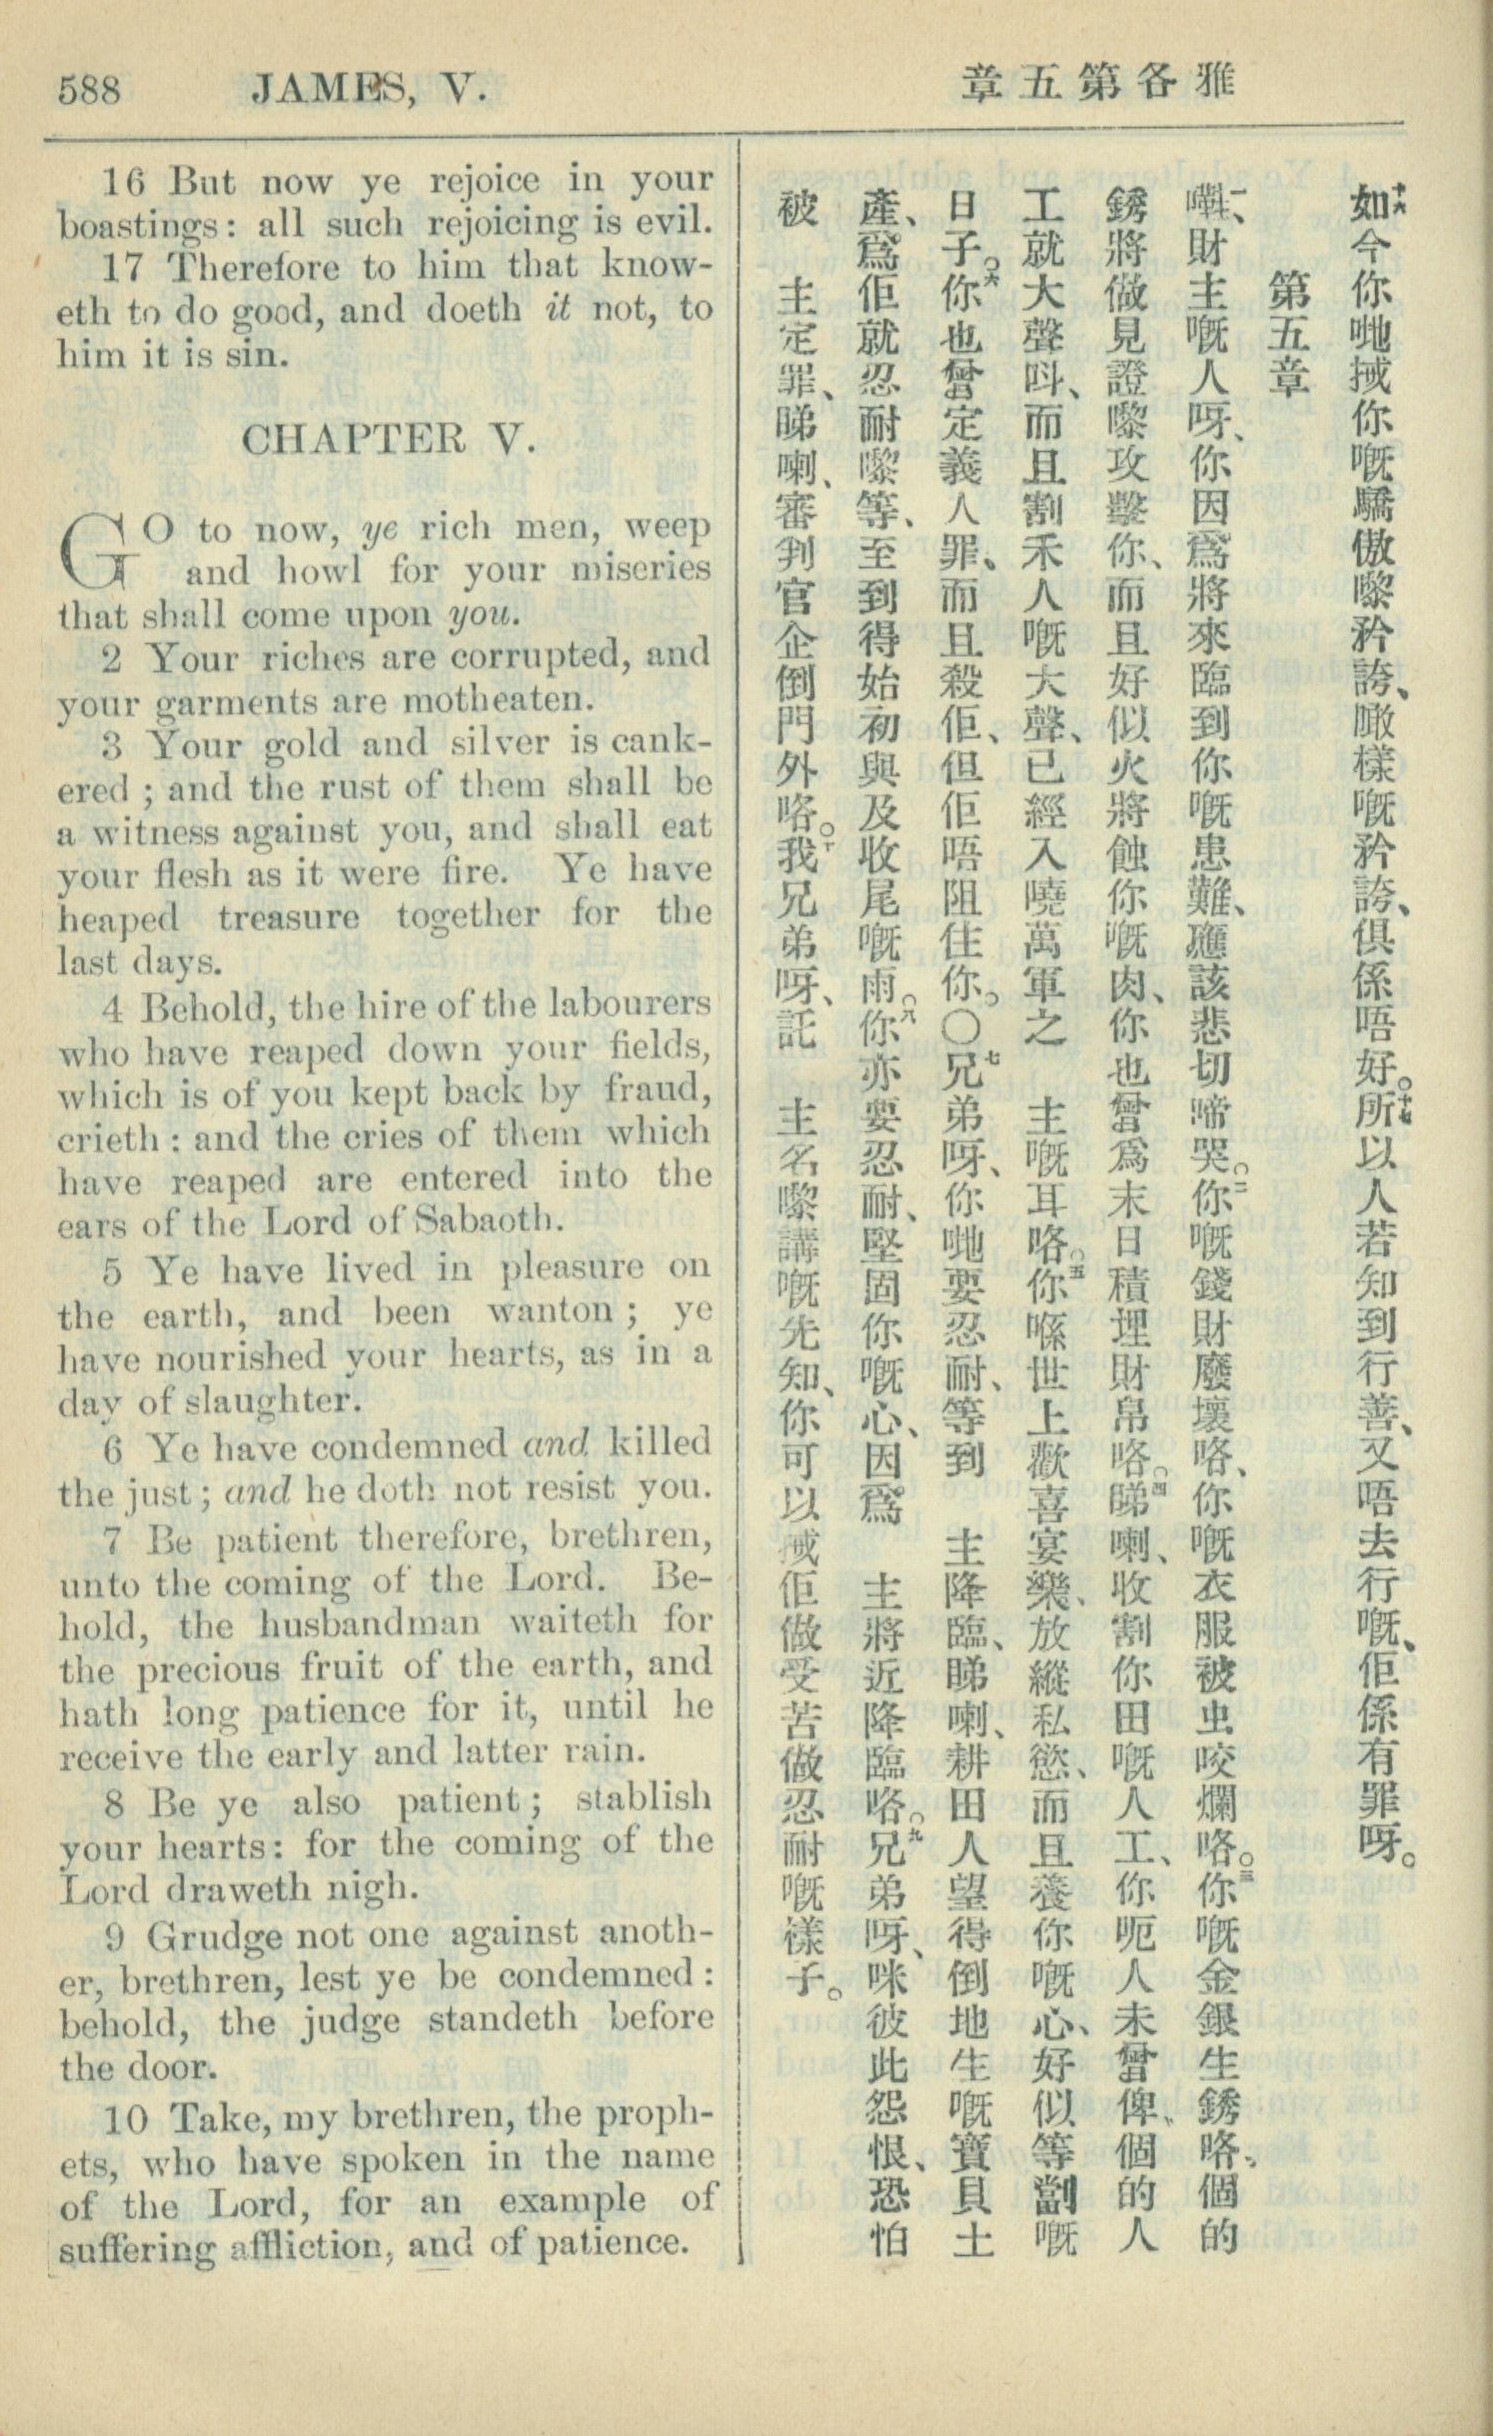 588 JAMES, V.
雅各第五章
16 But now ye rejoice in your
boastings: all such rejoicing is evil.
17 Therefore to him that know-
eth to do good, and doeth it not, to
him it is sin.
CHAPTER V.
GO to now, ye rich men, weep
and howl for your miseries
that shall come upon you.
2 Your riches are corrupted, and
your garments are motheaten.
3 Your gold and silver is cank-
ered; and the rust of them shall be
a witness against you, and shall eat
your flesh as it were fire. Ye have
heaped treasure together for the
last days.
4 Behold, the hire of the labourers
who have reaped down your fields,
which is of you kept back by fraud,
crieth: and the cries of them which
have reaped are entered into the
ears of the Lord of Sabaoth.
5 Ye have lived in pleasure on
the earth, and been wanton; ye
have nourished your hearts, as in a
day of slaughter.
6 Ye have condemned and killed
the just; and he doth not resist you.
7 Be patient therefore, brethren,
unto the coming of the Lord. Be-
hold, the husbandman waiteth for
the precious fruit of the earth, and
hath long patience for it, until he
receive the early and latter rain.
8 Be ye also patient; stablish
your hearts: for the coming of the
Lord draweth nigh.
9 Grudge not one against anoth-
er, brethren, lest ye be condemned:
behold, the judge standeth before
the door.
10 Take, my brethren, the proph-
ets, who have spoken in the name
of the Lord, for an example of
suffering affliction, and of patience.
十六如今你哋㨳你嘅驕傲嚟矜誇、噉樣嘅矜誇、俱係唔好。十七所以人若知到行善、又唔去行嘅、佢係有罪呀。
第五章
一嘩、財主嘅人呀、你因爲將來臨到你嘅患難、應該悲切啼哭。二你嘅錢財廢壞咯、你嘅衣服被虫咬爛咯。三你嘅金銀生銹咯、個的
銹將做見證嚟攻擊你、而且好似火將蝕你嘅肉、你也曾爲末日積埋財帛咯。四睇喇、收割你田嘅人工、你呃人未曾俾、個的人
工就大聲呌、而且割禾人嘅大聲、已經入嘵萬軍之 主嘅耳咯。五你喺世上歡喜宴樂、放縱私慾、而且養你嘅心、好似等劏嘅
日子。六你也曾定義人罪、而且殺佢、但佢唔阻住你。〇七兄弟呀、你哋要忍耐、等到 主降臨、睇喇、耕田人望得倒地生嘅寶貝土
產、爲佢就忍耐嚟等、至到得始初與及收尾嘅雨。八你亦要忍耐、堅固你嘅心、因爲 主將近降臨咯。九兄弟呀、咪彼此怨恨、恐怕
被 主定罪、睇喇、審判官企倒門外咯。十我兄弟呀、託 主名嚟講嘅先知、你可以㨳佢做受苦做忍耐嘅樣子。